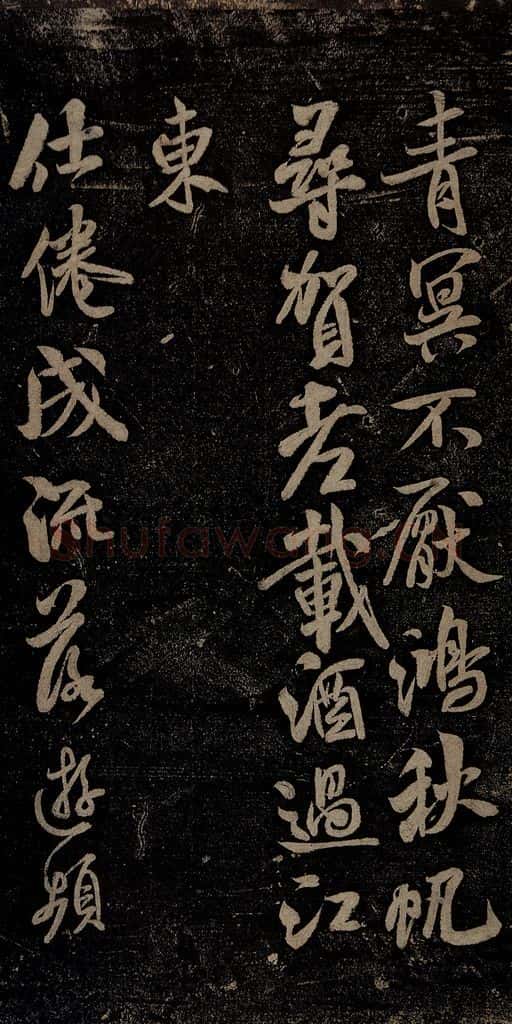 青冥不厭鴻秋帆
尋賀老載酒過江
東
仕倦成流落遊頻